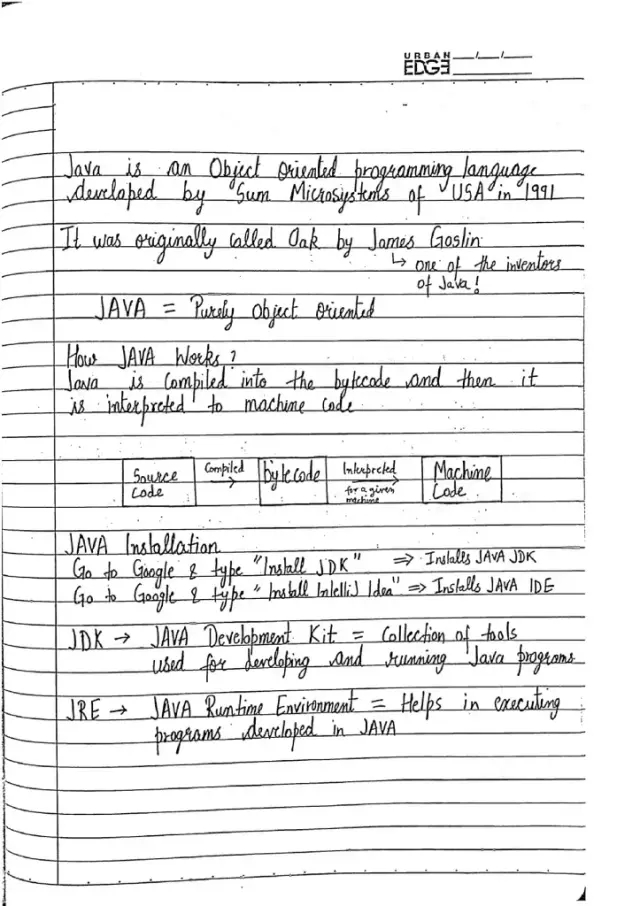 URBAN
EDGE
Java is an Object Oriented programming language
developed by Sum Microsystems of USA in 1991
It was originally called Oak by James Goslin
↳ one of the inventors
of Java!
JAVA = Purely object oriented
How JAVA Works?
Java is Compiled into the bytecode and then it
is interpreted to machine code
Source Code Compiled → bytecode Interpreted → for a given machine Machine Code.
JAVA Installation
Go to Google & type "Install JDK" ⇒ Installs JAVA JDK
Go to Google & type "Install IntelliJ Idea" ⇒ Installs JAVA IDE
JDK → JAVA Development Kit = Collection of tools
used for developing and running Java programs
JRE → JAVA Runtime Environment = Helps in executing
programs developed in JAVA